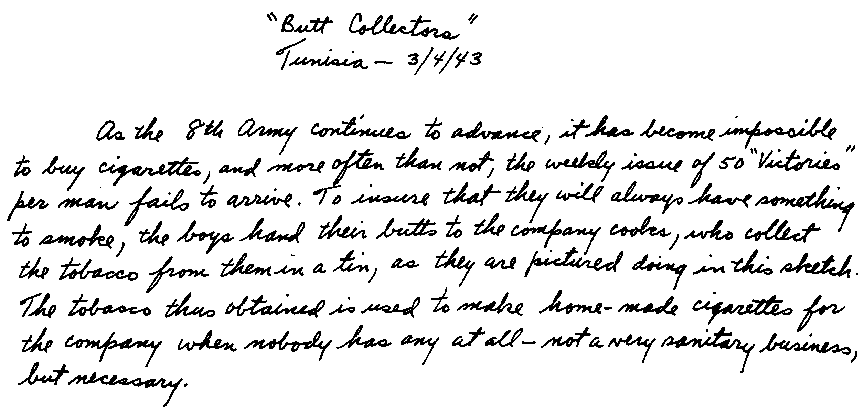 "Butt Collectors"
Tunisia — 3/4/43
As the 8th Army continues to advance, it has become impossible
to buy cigarettes, and more often than not, the weekly issue of 50 "Victories"
per man fails to arrive. To insure that they will always have something
to smoke, the boys hand their butts to the company cooks, who collect
the tobacco from them in a tin, as they are pictured doing in this sketch.
The tobacco thus obtained is used to make home-made cigarettes for
the company when nobody has any at all — not a very sanitary business,
but necessary.